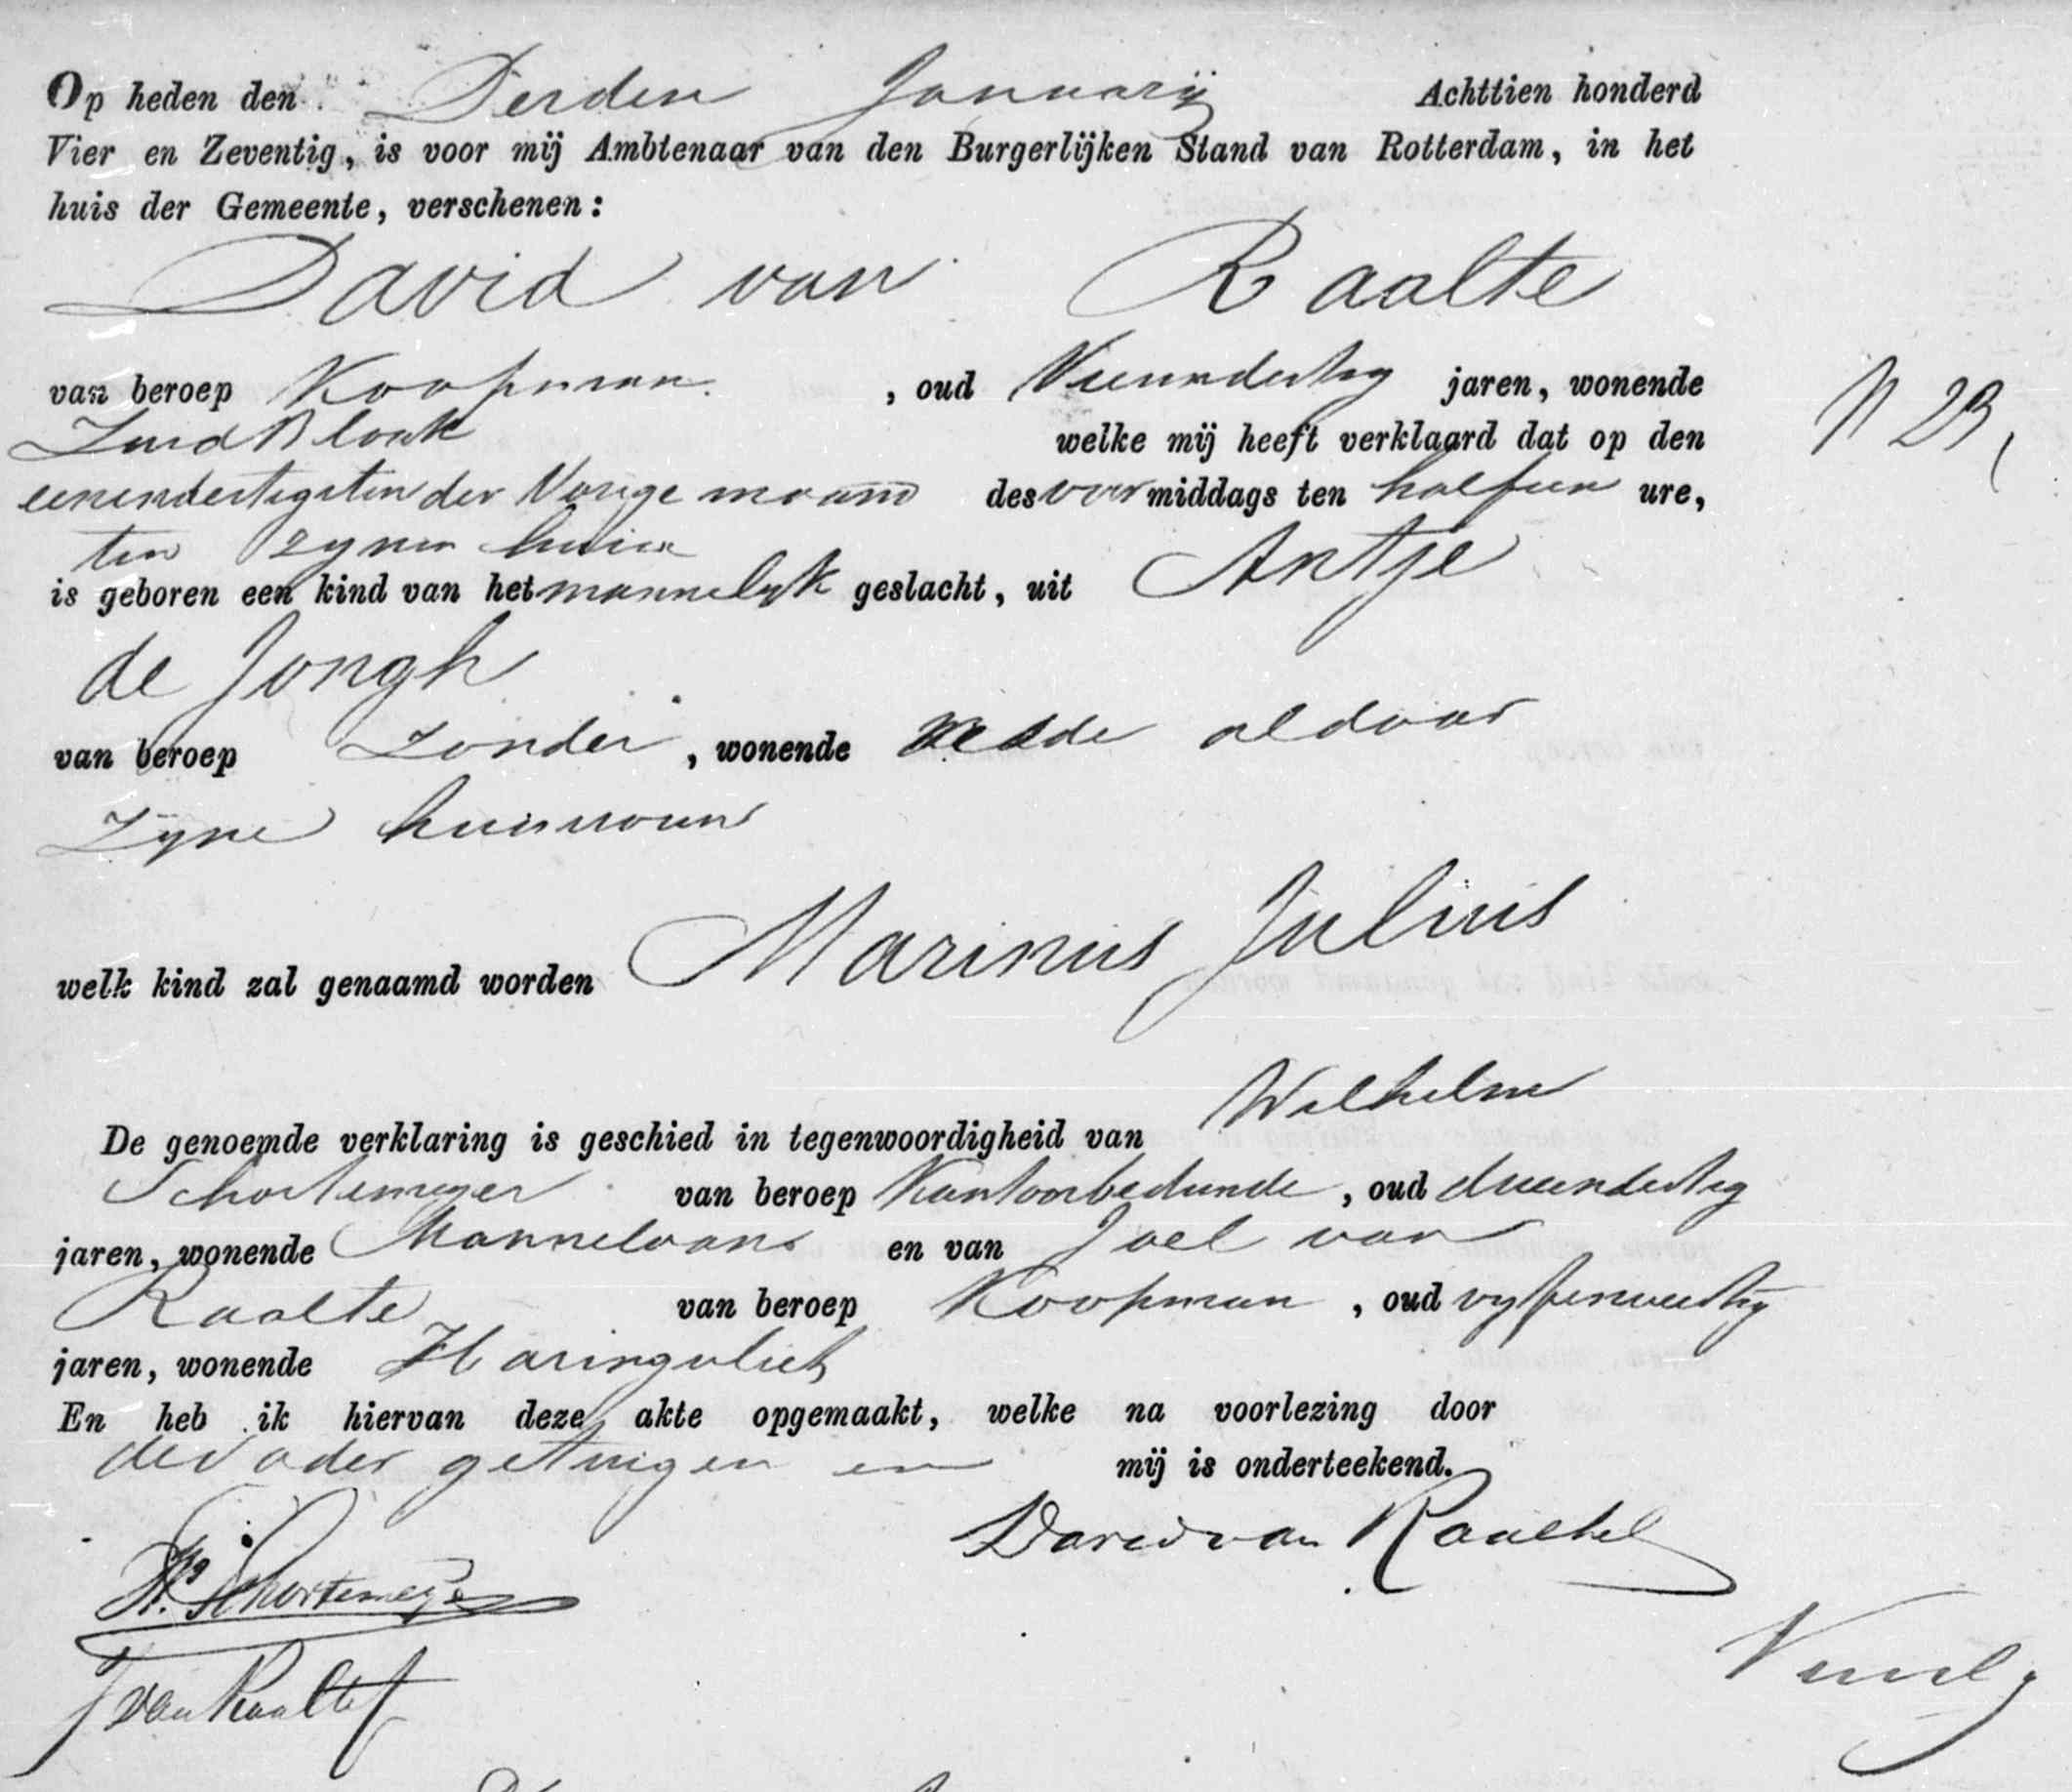 Op heden den Derden Januarij Achttien honderd
Vier en Zeventig, is voor mij Ambtenaar van den Burgerlijken Stand van Rotterdam, in het
huis der Gemeente, verschenen:
David van Raalte
van beroep Koopman, oud Vierendertig jaren, wonende
ZuidBlaak welke mij heeft verklaard dat op den
N 23,
eenendertigsten der Vorige maand des voormiddags ten half een ure,
ten zynen huize
is geboren een kind van het mannelyk geslacht, uit Antje
de Jongh
van beroep Zonder, wonende mede aldaar
Zyne huisvrouw
welk kind zal genaamd worden Marinus Julius
De genoemde verklaring is geschied in tegenwoordigheid van Wilhelm
Schortemeyer van beroep Kantoorbediende, oud drieendertig
jaren, wonende en van Joel van
Raalte van beroep Koopman, oud vyfenveertig
jaren, wonende Haringvliet
En heb ik hiervan deze akte opgemaakt, welke na voorlezing door
de Vader getuigen en mij is onderteekend.
David van Raalte
W. Schortemeyer
J van Raalte